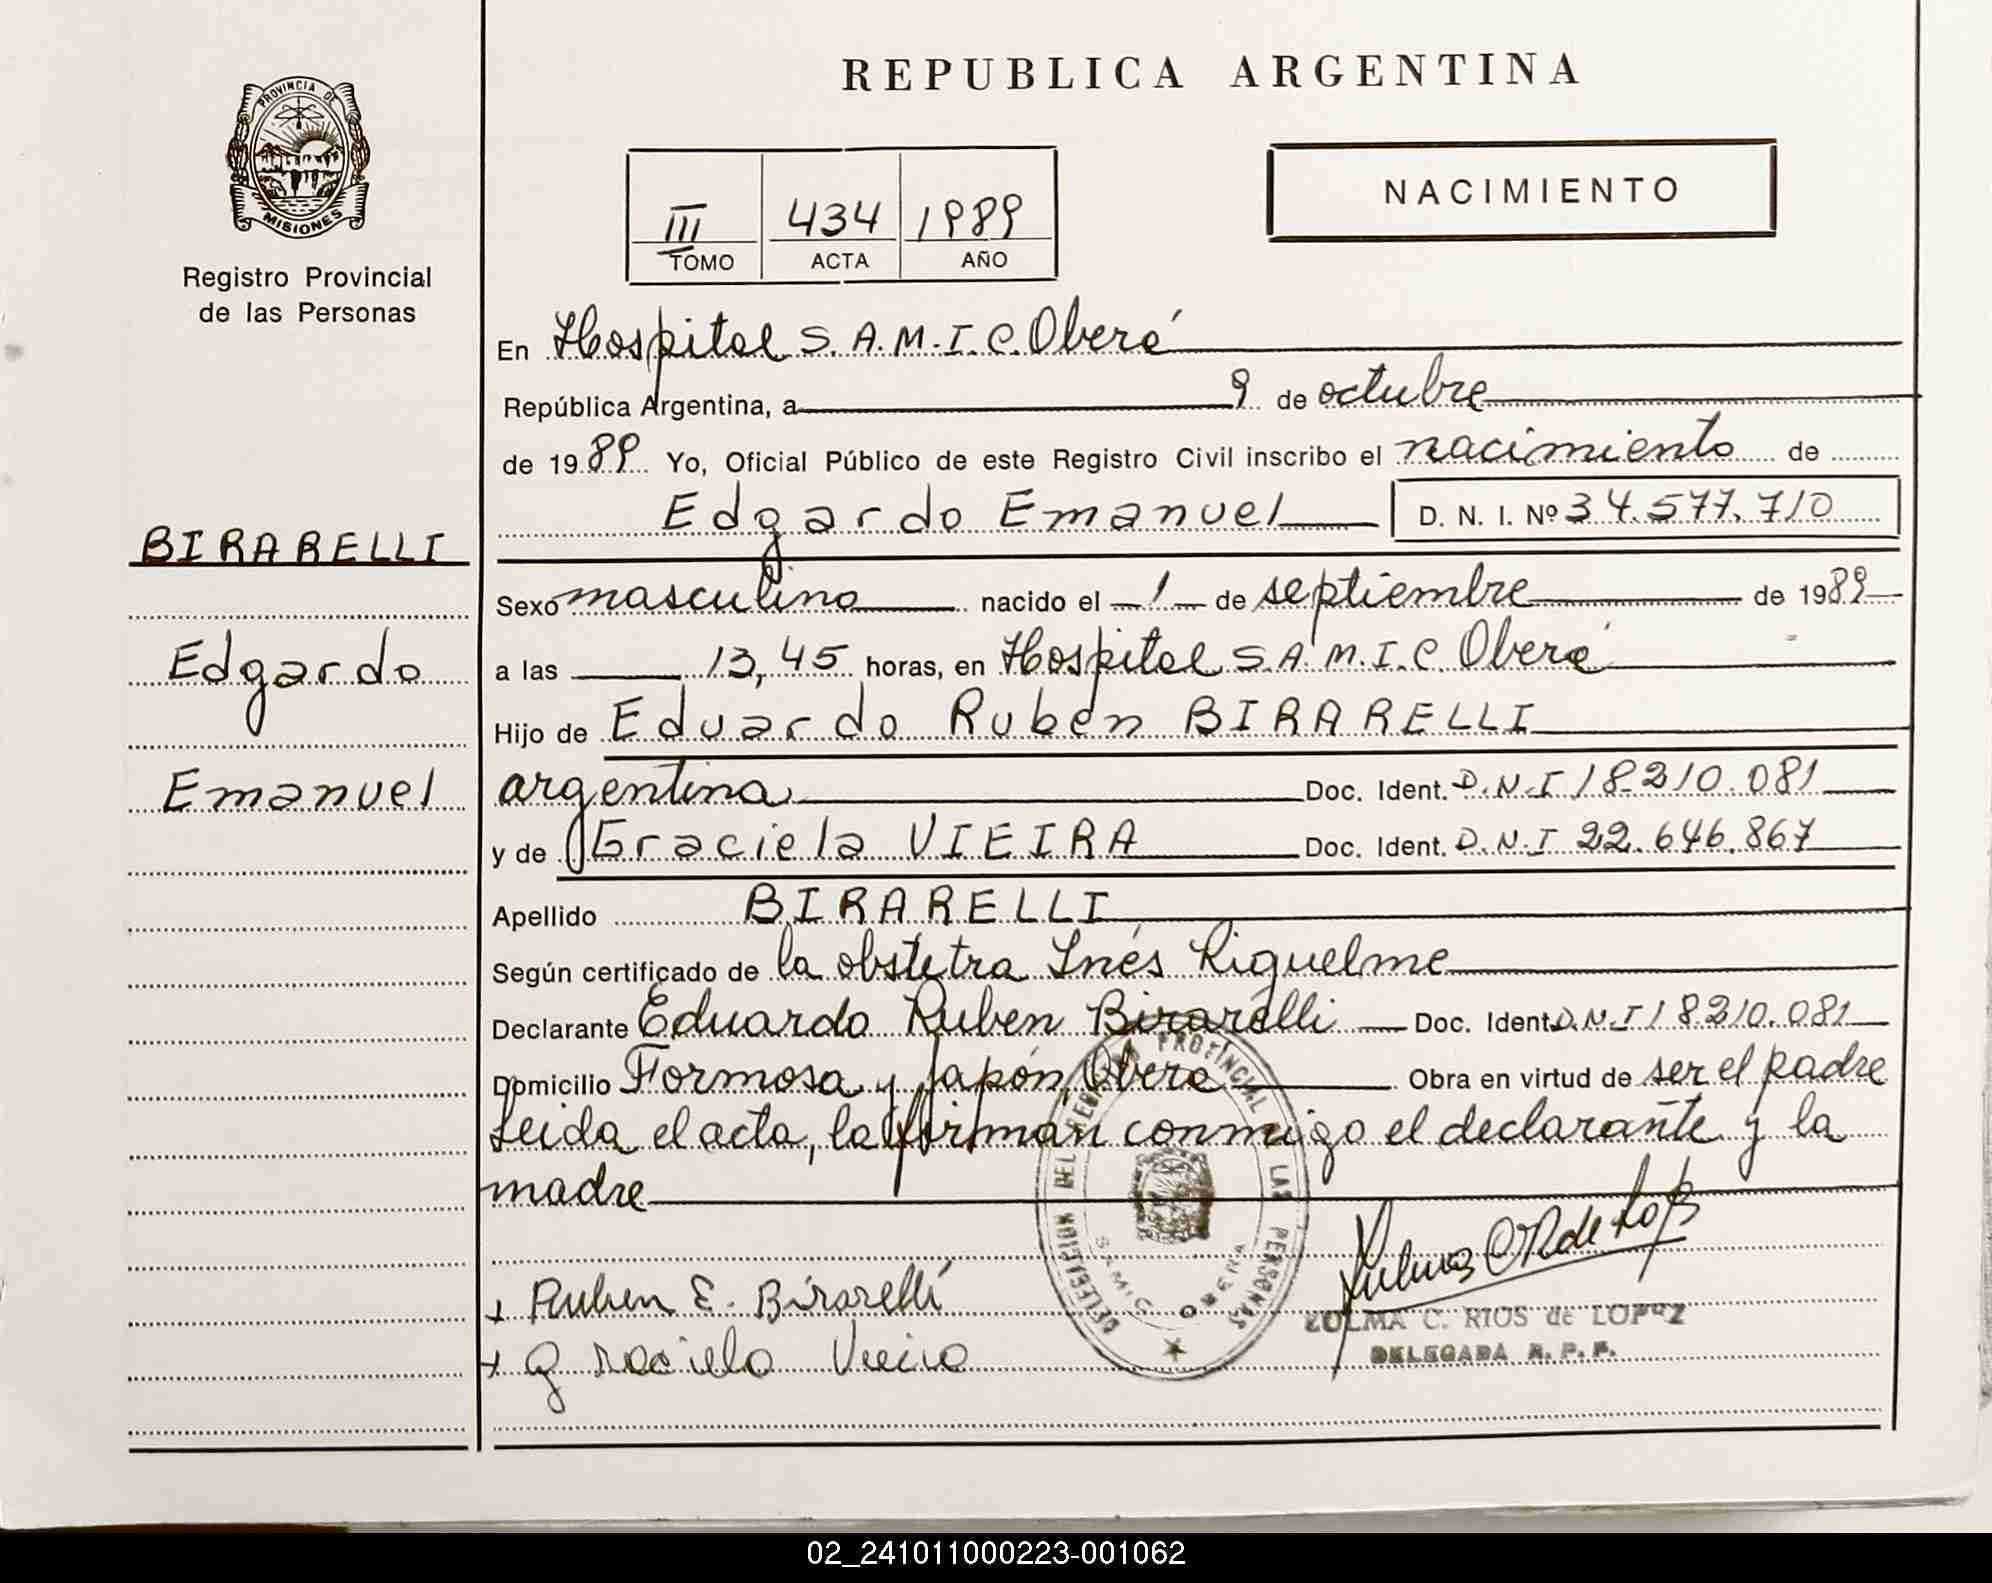 REPUBLICA ARGENTINA
PROVINCIA DE
MISIONES
Registro Provincial
de las Personas
III 434 1989
TOMO ACTA AÑO
NACIMIENTO
En Hospital S.A.M.I.C. Oberá
República Argentina, a 9 de octubre
de 1989 Yo, Oficial Público de este Registro Civil inscribo el nacimiento de
Edgardo Emanuel D. N. I. Nº 34.577.710
BIRARELLI
Edgardo
Emanuel
Sexo masculino nacido el 1 de septiembre de 1989
a las 13,45 horas, en Hospital S.A.M.I.C Oberá
Hijo de Eduardo Ruben BIRARELLI
argentina Doc. Ident. D.N.I 18.210.081
y de Graciela VIEIRA Doc. Ident. D.N.I 22.646.867
Apellido BIRARELLI
Según certificado de la obstetra Inés Riquelme
Declarante Eduardo Ruben Birarelli Doc. Ident. D.N.I 18.210.081
Domicilio Formosa y Japón, Obera Obra en virtud de ser el padre
Leida el acta, la firman conmigo el declarante y la
madre
DELEGACION DEL REGISTRO PROVINCIAL DE LAS PERSONAS
SAMIC OBERA
+ Ruben E. Birarelli
+ graciela Vieira
ZULMA C. RIOS de LOPEZ
DELEGADA R. P. P.
02_241011000223-001062